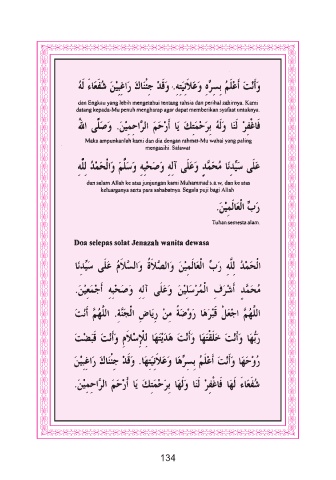 وَأَنْتَ أَعْلَمُ بِسِرِّهِ وَعَلَانِيَتِهِ. وَقَدْ جِئْنَاكَ رَاغِبِيْنَ شُفَعَاءَ لَهُ
dan Engkau yang lebih mengetahui tentang rahsia dan perihal zahirnya. Kami
datang kepada-Mu penuh mengharap agar dapat memberikan syafaat untuknya.
فَاغْفِرْ لَنَا وَلَهُ بِرَحْمَتِكَ يَا أَرْحَمَ الرَّاحِمِيْنَ. وَصَلَّى اللهُ
Maka ampunkanlah kami dan dia dengan rahmat-Mu wahai yang paling
mengasihi. Selawat
عَلَى سَيِّدِنَا مُحَمَّدٍ وَعَلَى آلِهِ وَصَحْبِهِ وَسَلَّمَ وَالْحَمْدُ لِلَّهِ
dan salam Allah ke atas junjungan kami Muhammad s.a.w. dan ke atas
keluarganya serta para sahabatnya. Segala puji bagi Allah
رَبِّ الْعَالَمِيْنَ.
Tuhan semesta alam.
Doa selepas solat Jenazah wanita dewasa
الْحَمْدُ لِلَّهِ رَبِّ الْعَالَمِيْنَ وَالصَّلَاةُ وَالسَّلَامُ عَلَى سَيِّدِنَا
مُحَمَّدٍ أَشْرَفِ الْمُرْسَلِيْنَ وَعَلَى آلِهِ وَصَحْبِهِ أَجْمَعِيْنَ.
اللَّهُمَّ اجْعَلْ قَبْرَهَا رَوْضَةً مِنْ رِيَاضِ الْجَنَّةِ. اللَّهُمَّ أَنْتَ
رَبُّهَا وَأَنْتَ خَلَقْتَهَا وَأَنْتَ هَدَيْتَهَا لِلْإِسْلَامِ وَأَنْتَ قَبَضْتَ
رُوْحَهَا وَأَنْتَ أَعْلَمُ بِسِرِّهَا وَعَلَانِيَتِهَا. وَقَدْ جِئْنَاكَ رَاغِبِيْنَ
شُفَعَاءَ لَهَا فَاغْفِرْ لَنَا وَلَهَا بِرَحْمَتِكَ يَا أَرْحَمَ الرَّاحِمِيْنَ.
134